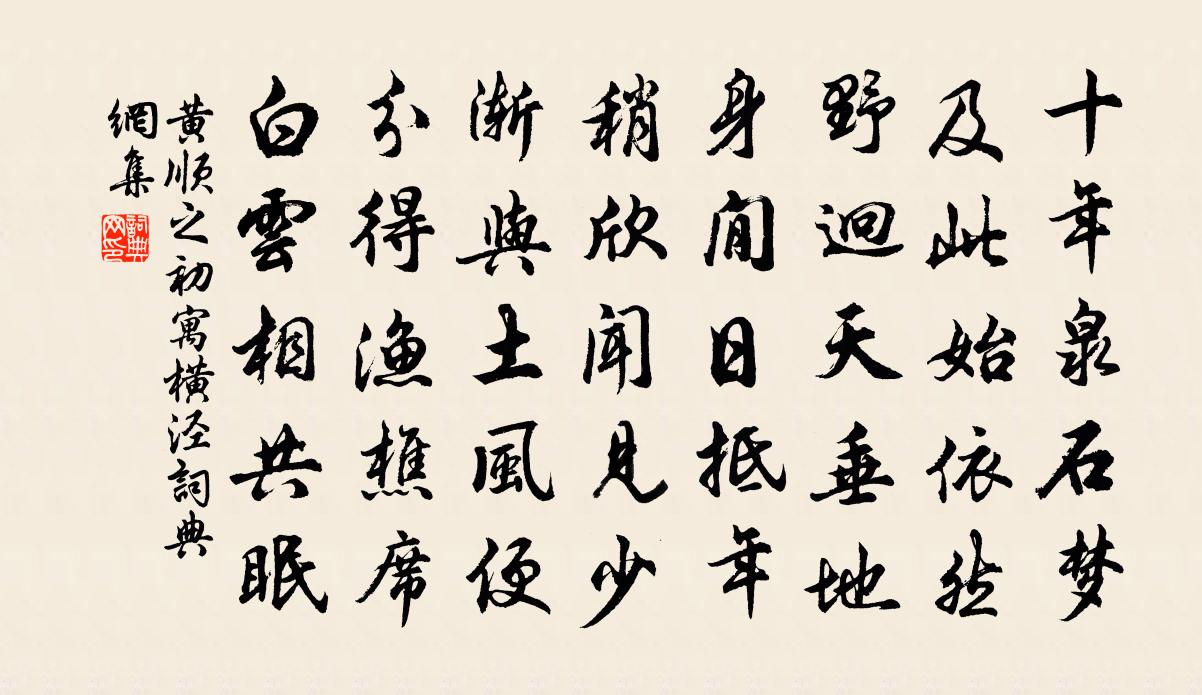 十年泉石梦
及此始依然
野迥天垂地
身閒日抵年
稍欣闻见少
渐與土風便
分得渔樵席
白雲相共眠
黄顺之初寓横泾詞典
網集
詞典
网印